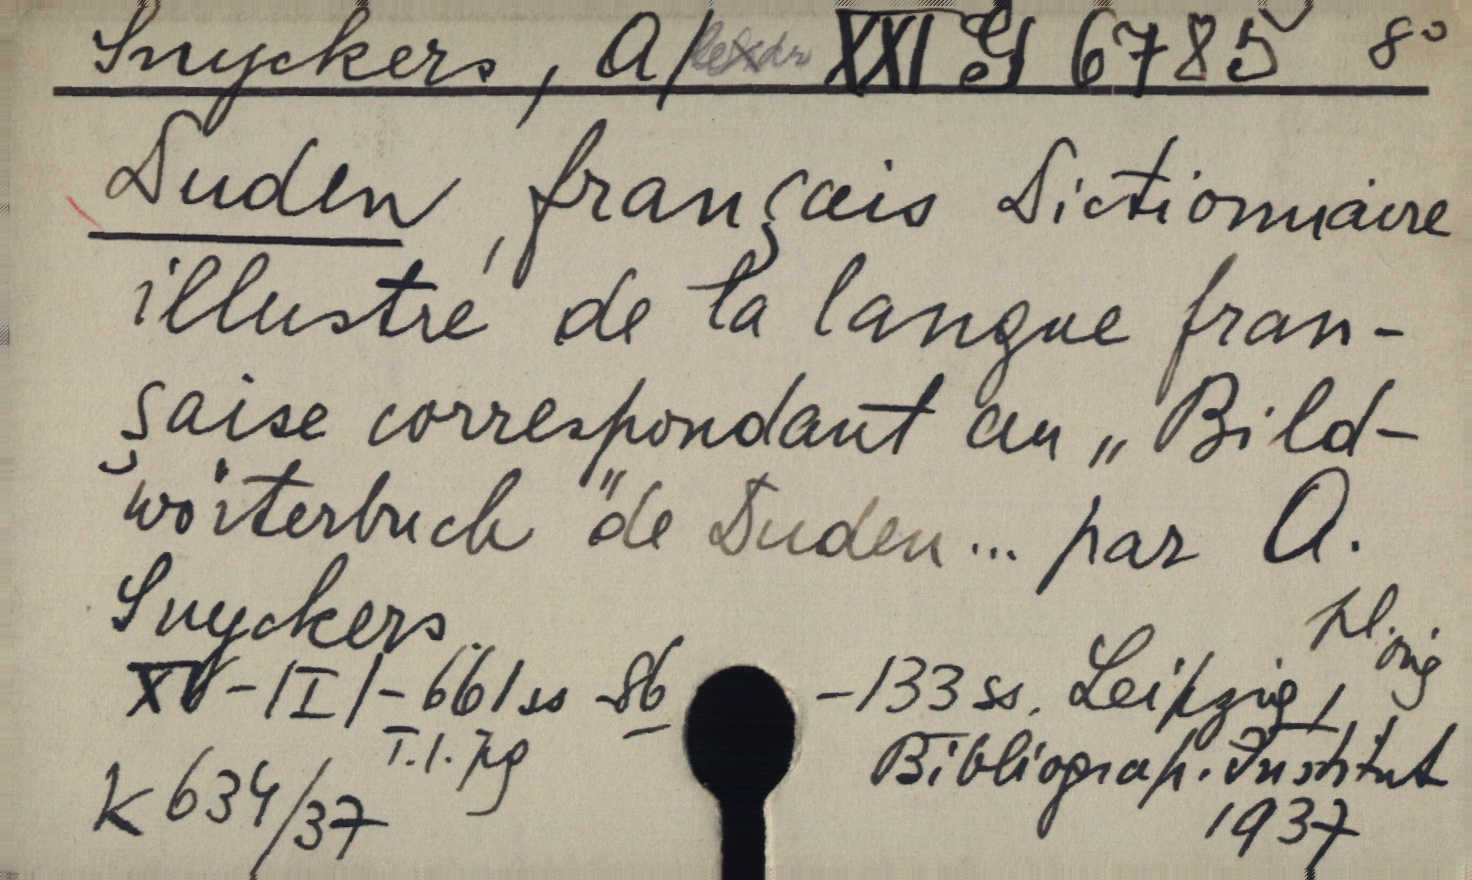 Snyckers, A/ XXI G 6785 8°
Duden, français Dictionnaire
illustré de la langue fran-
çaise correspondant au „Bild-
wörterbuch" de Duden... par A.
Snyckers.
pl. orig
XV-/I/-661 ss -86 -133 ss. Leipzig,
T.1. pg Bibliograph. Institut
K 634/37 1937